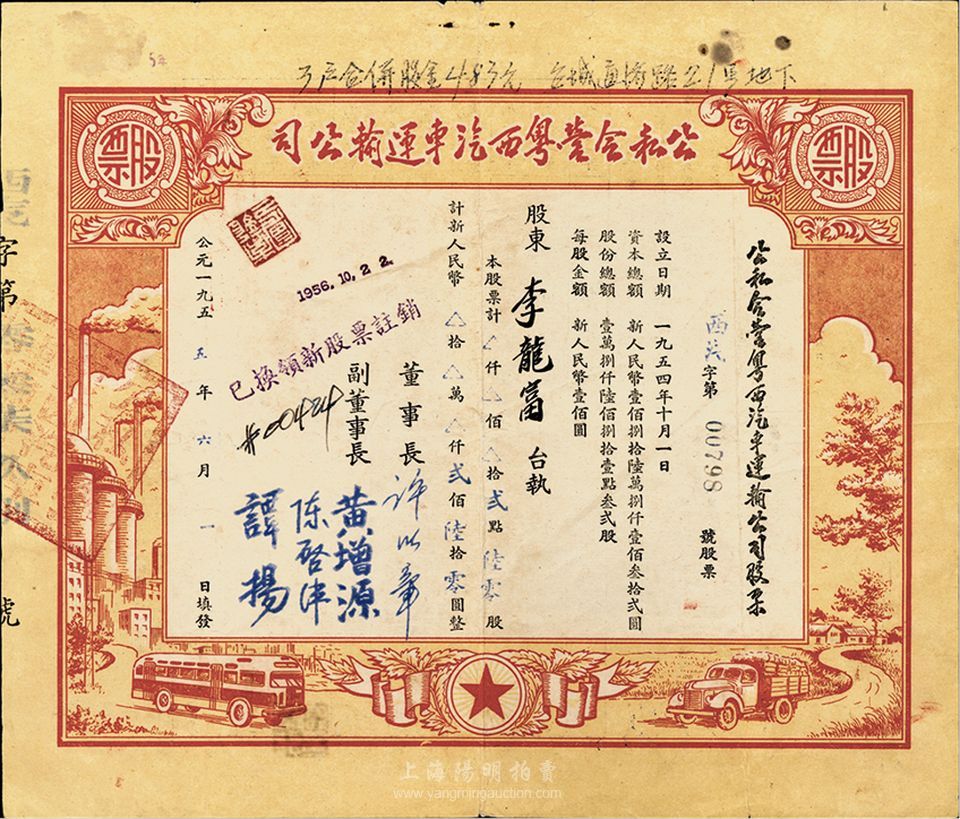 3户合併股金483元 台城直濟路21号地下
公私合營粵西汽車運輸公司
股票
股票
公私合營粵西汽車運輸公司股票
西茂字第 00798 號股票
設立日期 一九五四年十月一日
資本總額 新人民幣壹佰捌拾陸萬捌仟壹佰叁拾弍圓
股份總額 壹萬捌仟陸佰捌拾壹點叁弍股
每股金額 新人民幣壹佰圓
股東 李龍富 台執
本股票計 △仟△佰△拾弍點陸零股
計新人民幣 △拾△萬△仟弍佰陸拾零圓整
董事長 許以章
副董事長 黃增源
陈啓津
譚揚
1956.10.22.
已換領新股票註銷
#00424
公元一九五五年六月一日填發
字第
號
上海陽明拍賣
www.yangmingauction.com